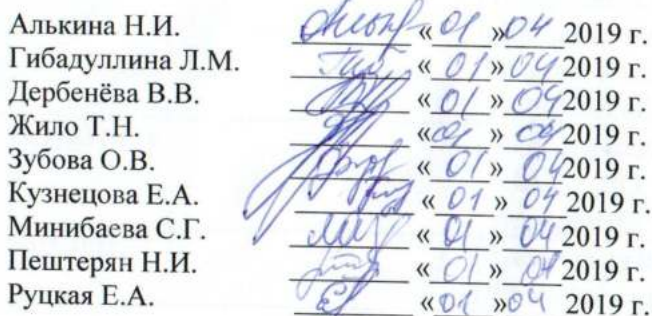 Алькина Н.И. «01» 04 2019 г.
Гибадуллина Л.М. «01» 04 2019 г.
Дербенёва В.В. «01» 04 2019 г.
Жило Т.Н. «01» 04 2019 г.
Зубова О.В. «01» 04 2019 г.
Кузнецова Е.А. «01» 04 2019 г.
Минибаева С.Г. «01» 04 2019 г.
Пештерян Н.И. «01» 04 2019 г.
Руцкая Е.А. «01» 04 2019 г.